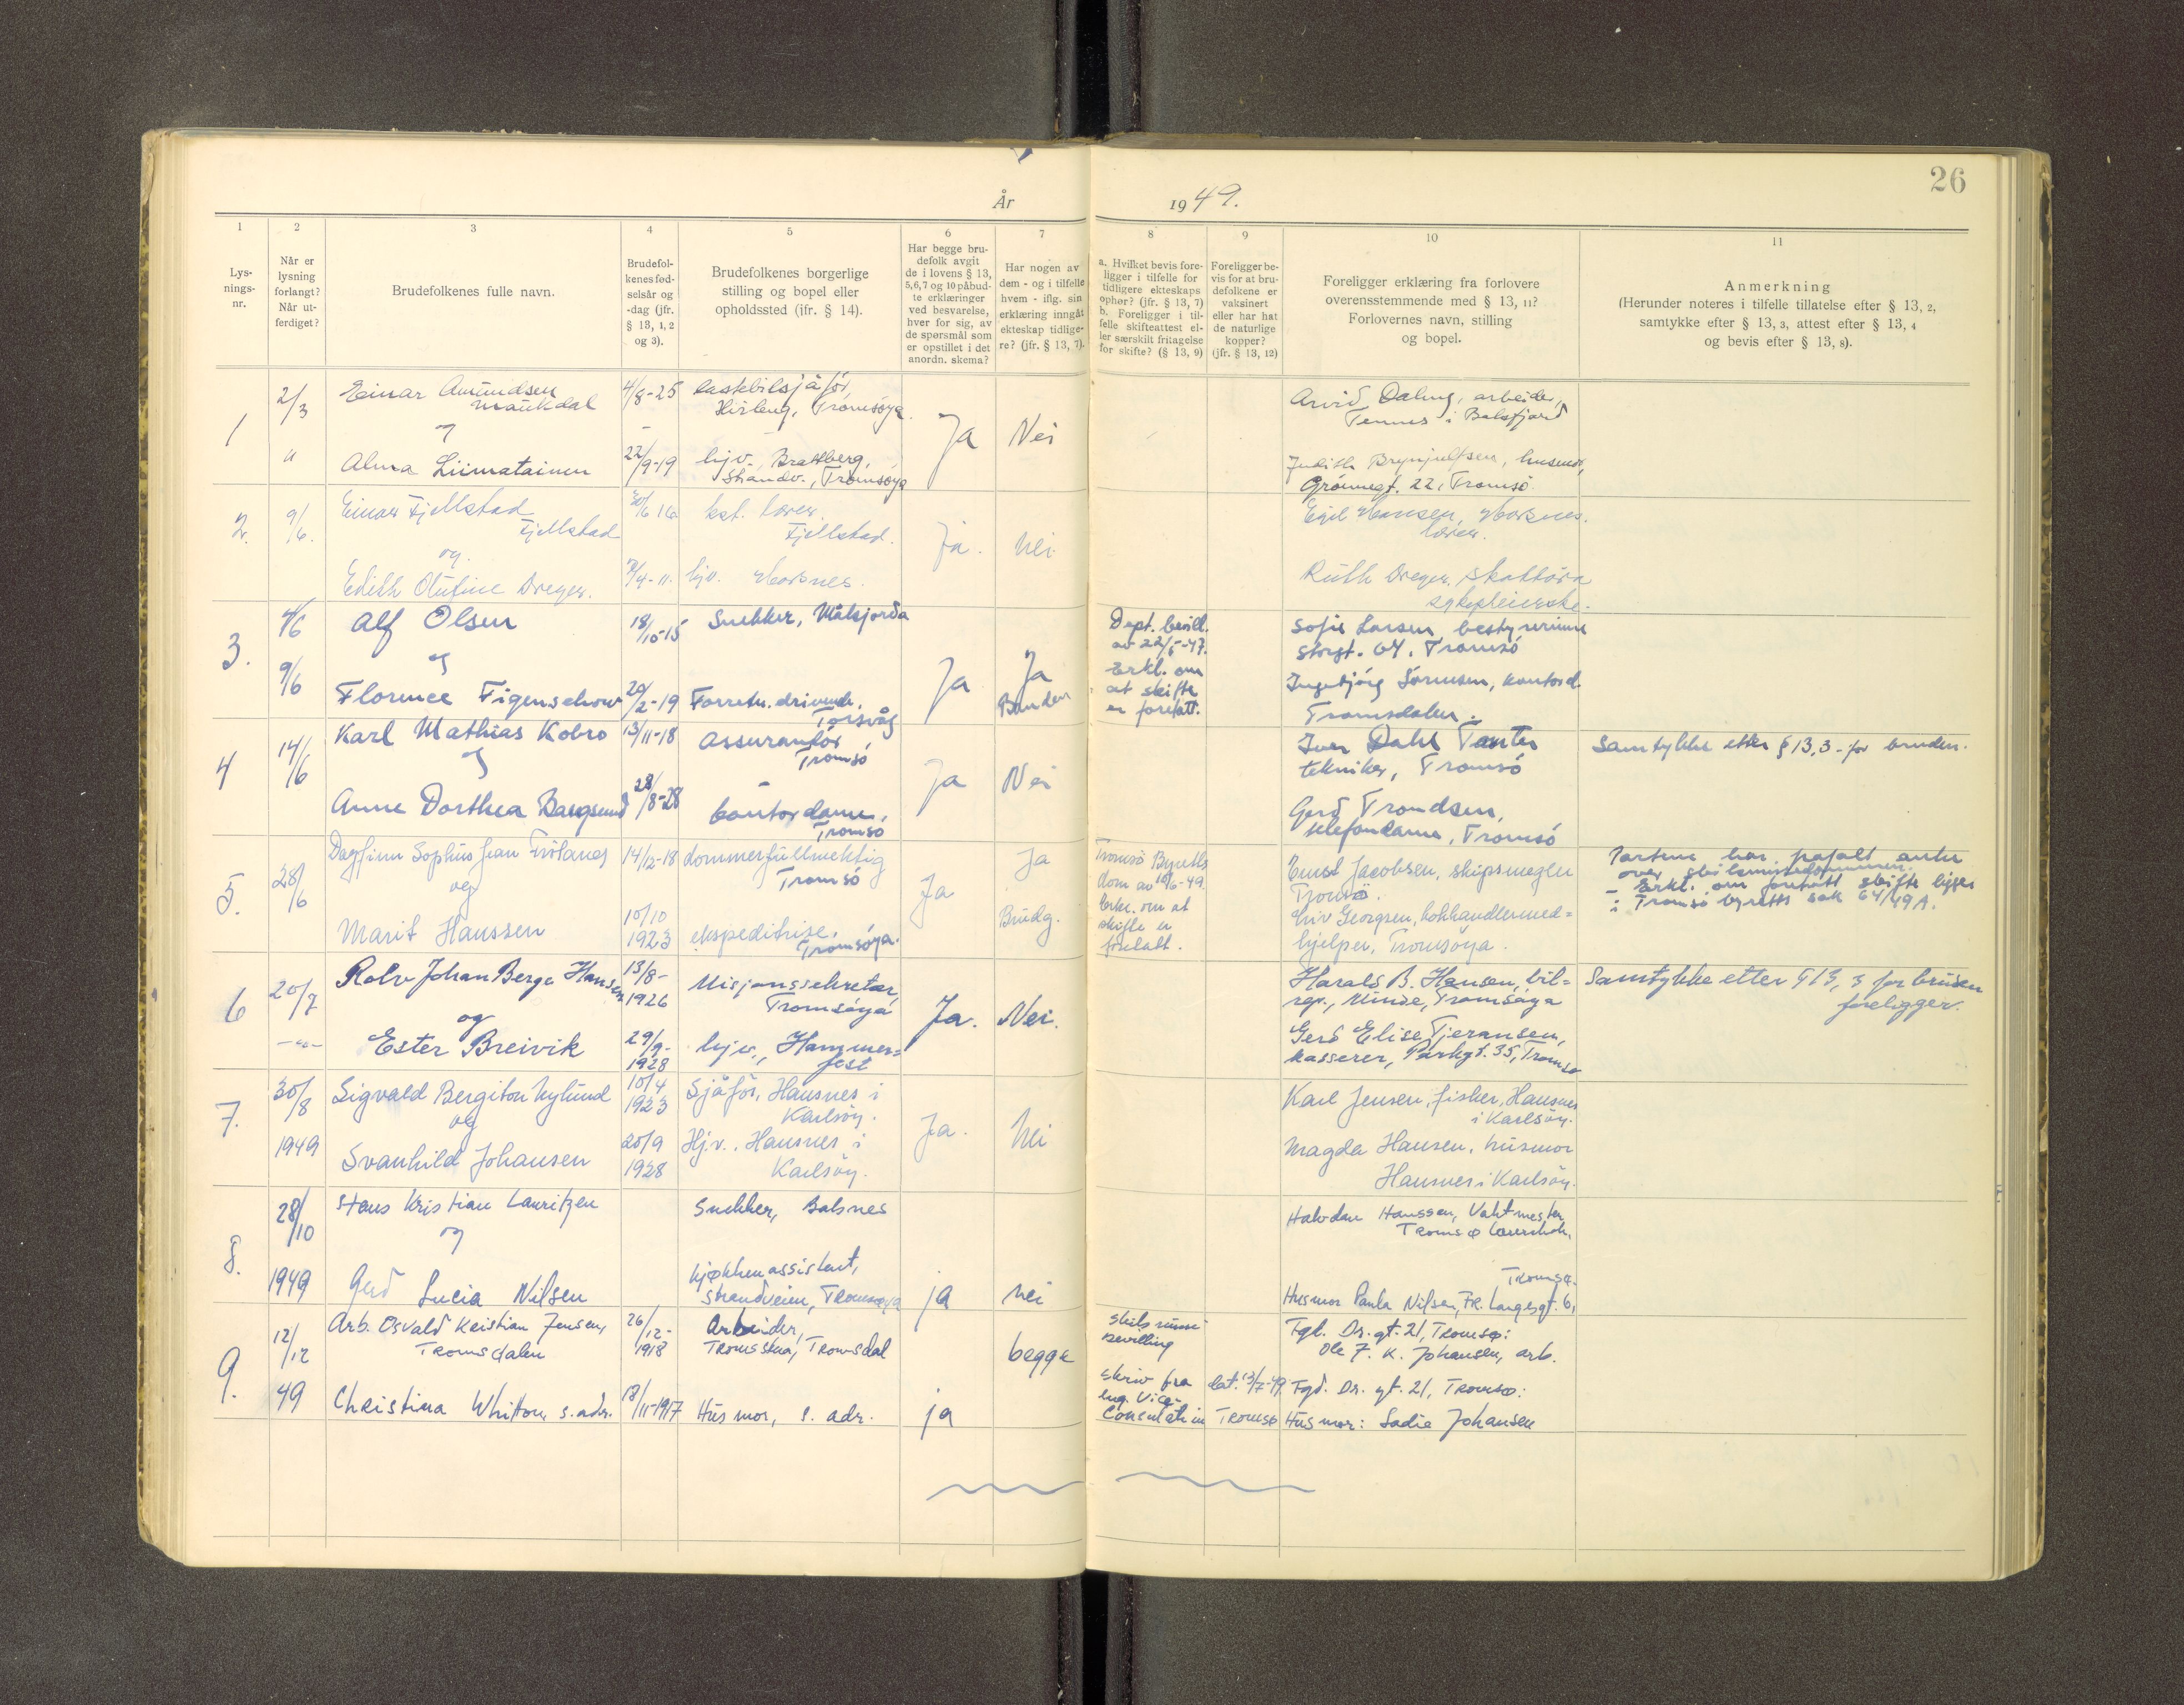 26
År
19 49.
1
2
3
4
5
6
7
8
9
10
11
Lys-
nings-
nr.
Når er
lysning
forlangt?
Når ut-
ferdiget?
Brudefolkenes fulle navn.
Brudefol-
kenes fød-
selsår og
-dag (jfr.
§ 13, 1, 2
og 3).
Brudefolkenes borgerlige
stilling og bopel eller
opholdssted (jfr. § 14).
Har begge bru-
defolk avgit
de i lovens § 13,
5,6,7 og 10 påbud-
te erklæringer
ved besvarelse,
hver for sig, av
de spørsmål som
er opstillet i det
anordn. skema?
Har nogen av
dem - og i tilfelle
hvem - iflg. sin
erklæring inngåt
ekteskap tidlige-
re? (jfr. § 13, 7).
a. Hvilket bevis fore-
ligger i tilfelle for
tidligere ekteskaps
ophør? (jfr. § 13, 7)
b. Foreligger i til-
felle skifteattest el-
ler særskilt fritagelse
for skifte? (§ 13, 9)
Foreligger be-
vis for at bru-
defolkene er
vaksinert
eller har hat
de naturlige
kopper?
(jfr. § 13, 12)
Foreligger erklæring fra forlovere
overensstemmende med § 13, 11?
Forlovernes navn, stilling
og bopel.
Anmerkning
(Herunder noteres i tilfelle tillatelse efter § 13, 2,
samtykke efter § 13, 3, attest efter § 13, 4
og bevis efter § 13, 8).
1
2/3
"
Einar Amundsen
Maukdal
og
Alma Liimatainen
4/8-25
22/9-19
lastebilsjåför,
Tromsöya.
hjv., Brattberg,
Strandv., Tromsöya
Ja
Nei
Arvid Daling, arbeider,
Tennes i Balsfjord
Judith Brynjulfsen, husmor,
Grönnegt. 22, Tromsö.
2.
9/6.
Einar Fjellstad
Fjellstad
og.
Edith Olufine Dreyer.
30/6 16
7/4-11.
kst. lærer.
Fjellstad.
hjv. Marsnes.
Ja.
Nei
Egil Hansen, Marsnes.
lærer.
Ruth Dreyer. Skattöra
sykepleierske.
3.
4/6
9/6
Alf Olsen
og
Florence Figenschow
18/10-15
20/2-19
Snekker, Målsjorda
Forretn. drivende,
Torsvåg
Ja
Ja
Bruden
Dept. bevill.
av 22/5-47.
Erkl. om
at skifte
er foretatt.
Sofie Larsen, bestyrerinne
Storgt. 64, Tromsö
Ingebjörg Sörensen, kontord.
Tromsdalen.
4
14/6
Karl Mathias Kobro
og
Anne Dorthea Bangsund
13/11-18
28/8-28
Assurandör
Tromsö
kontordame,
Tromsö
Ja
Nei
Iver Dahl
tekniker, Tromsö
Gerd Trondsen,
telefondame, Tromsö
Samtykke etter § 13,3 - for bruden.
5.
28/6
Dagfinn Sophus Jean
og
Marit Hanssen
14/12-18
10/10
1923
dommerfullmektig
Tromsö
ekspeditrise,
Tromsöya.
Ja
Ja
Brudg.
Tromsö Byretts
dom av 10/6-49.
Erkl. om at
skifte er
foretatt.
Ernst Jacobsen, skipsmegler
Tromsö.
Liv Georgsen, bokhandlermed=
hjelper, Tromsöya.
Partene har påtalt anke
over skilsmissedommen.
- Erkl. om foretatt skifte ligger
i Tromsö byretts sak 64/49 A.
6
20/7
-"-
Rolv Johan Berge Hansen
og
Ester Breivik
13/8-
1926
29/9-
1928
Misjonssekretær,
Tromsöya
hjv., Hammer=
fest
Ja.
Nei.
Harald B. Hansen, bil=
rep., Minde, Tromsöya
Gerd Elise Tjeransen,
kasserer, Parkgt. 35, Tromsö
Samtykke etter § 13, 3 for bruden
foreligger.
7.
30/8
1949
Sigvald Bergiton Nylund
og
Svanhild Johansen
10/4
1923
20/9
1928
Sjåför, Hansnes i
Karlsöy.
Hj.v., Hansnes i
Karlsöy.
Ja.
Nei
Karl Jensen, fisker, Hansnes
i Karlsöy.
Magda Hansen, husmor
Hansnes i Karlsöy.
8.
28/10
1949
Hans Kristian Lauritzen
og
Gerd Lucia Nilsen
Snekker, Balsnes
kjøkkenassistent,
Strandveien, Tromsøya
ja
nei
Halvdan Hanssen, Vaktmester
Tromsø
Tromsø.
Husmor Paula Nilsen, Fr. Langesgt. 6,
9.
12/12
49
Arb. Osvald Kristian Jensen,
Tromsdalen
Christina Whitton, s. adr.
26/12-
1918
18/11-1917
Arbeider,
Tromsdal
Husmor, s. adr.
ja
begge
Skilsmisse
bevilling
Skriv fra
eng. Vice-
Consulat in
dat. 13/7-49.
Tromsø
Fgl. Dr. gt. 21, Tromsø:
Ole F. K. Johansen, arb.
Fgd. Dr. gt. 21, Tromsø:
Husmor: Sadie Johansen